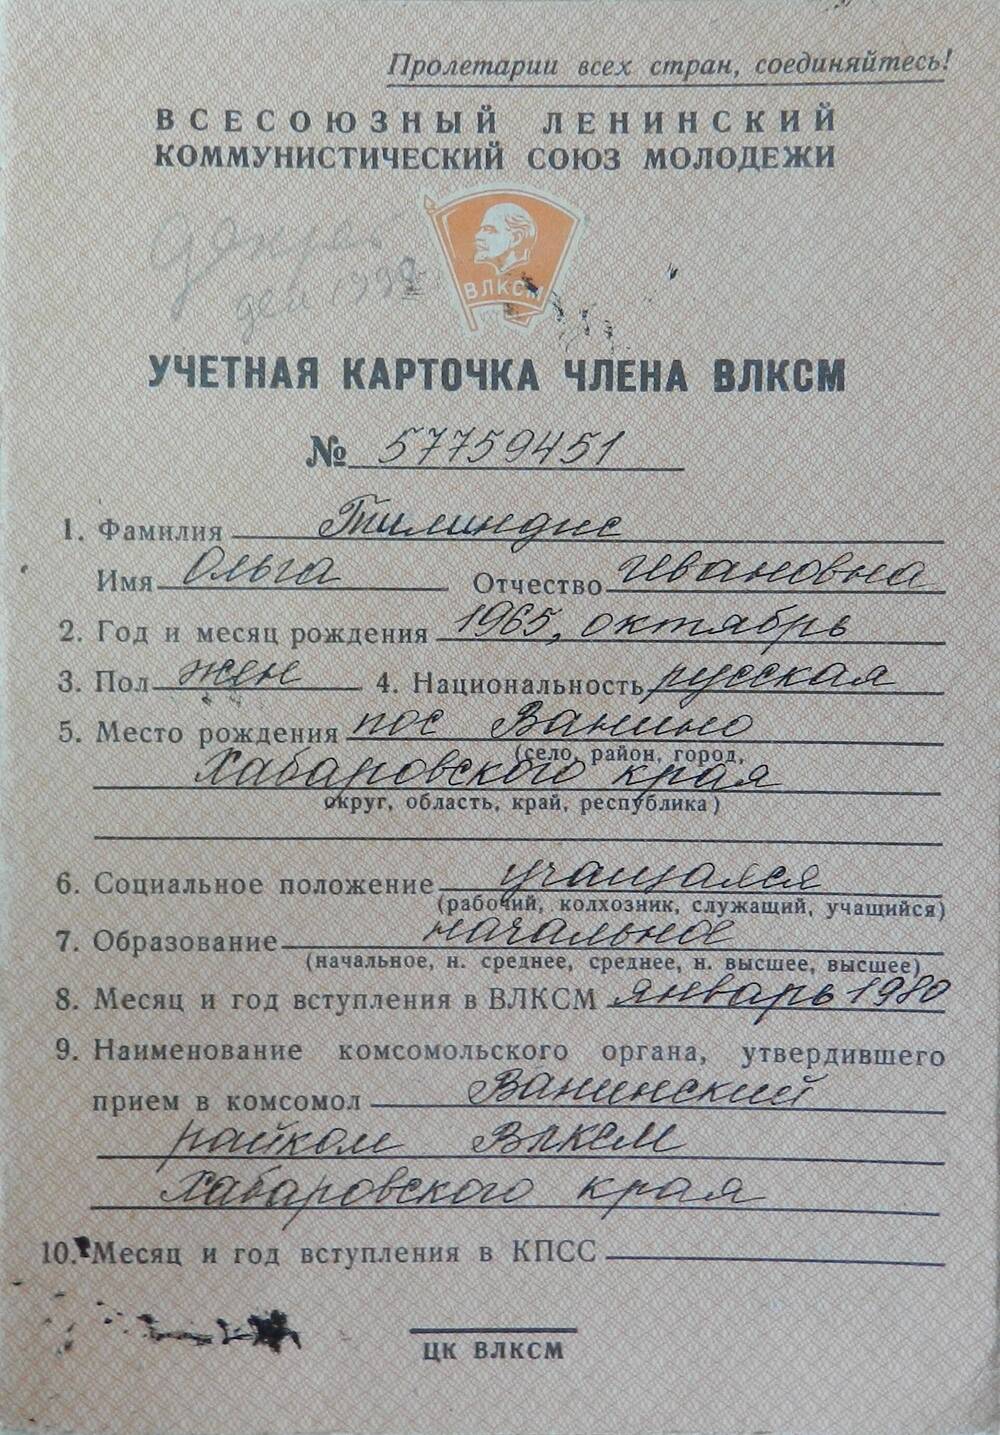 Пролетарии всех стран, соединяйтесь!
ВСЕСОЮЗНЫЙ ЛЕНИНСКИЙ
КОММУНИСТИЧЕСКИЙ СОЮЗ МОЛОДЕЖИ
ВЛКСМ
УЧЕТНАЯ КАРТОЧКА ЧЛЕНА ВЛКСМ
№ 57759451
1. Фамилия Тилиндис
Имя Ольга Отчество Ивановна
2. Год и месяц рождения 1965, октябрь
3. Пол жен 4. Национальность русская
5. Место рождения пос Ванино
(село, район, город,
Хабаровского края
округ, область, край, республика)
6. Социальное положение учащаяся
(рабочий, колхозник, служащий, учащийся)
7. Образование начальное
(начальное, н. среднее, среднее, н. высшее, высшее)
8. Месяц и год вступления в ВЛКСМ январь 1980
9. Наименование комсомольского органа, утвердившего
прием в комсомол Ванинский
райком ВЛКСМ
Хабаровского края
10. Месяц и год вступления в КПСС
ЦК ВЛКСМ